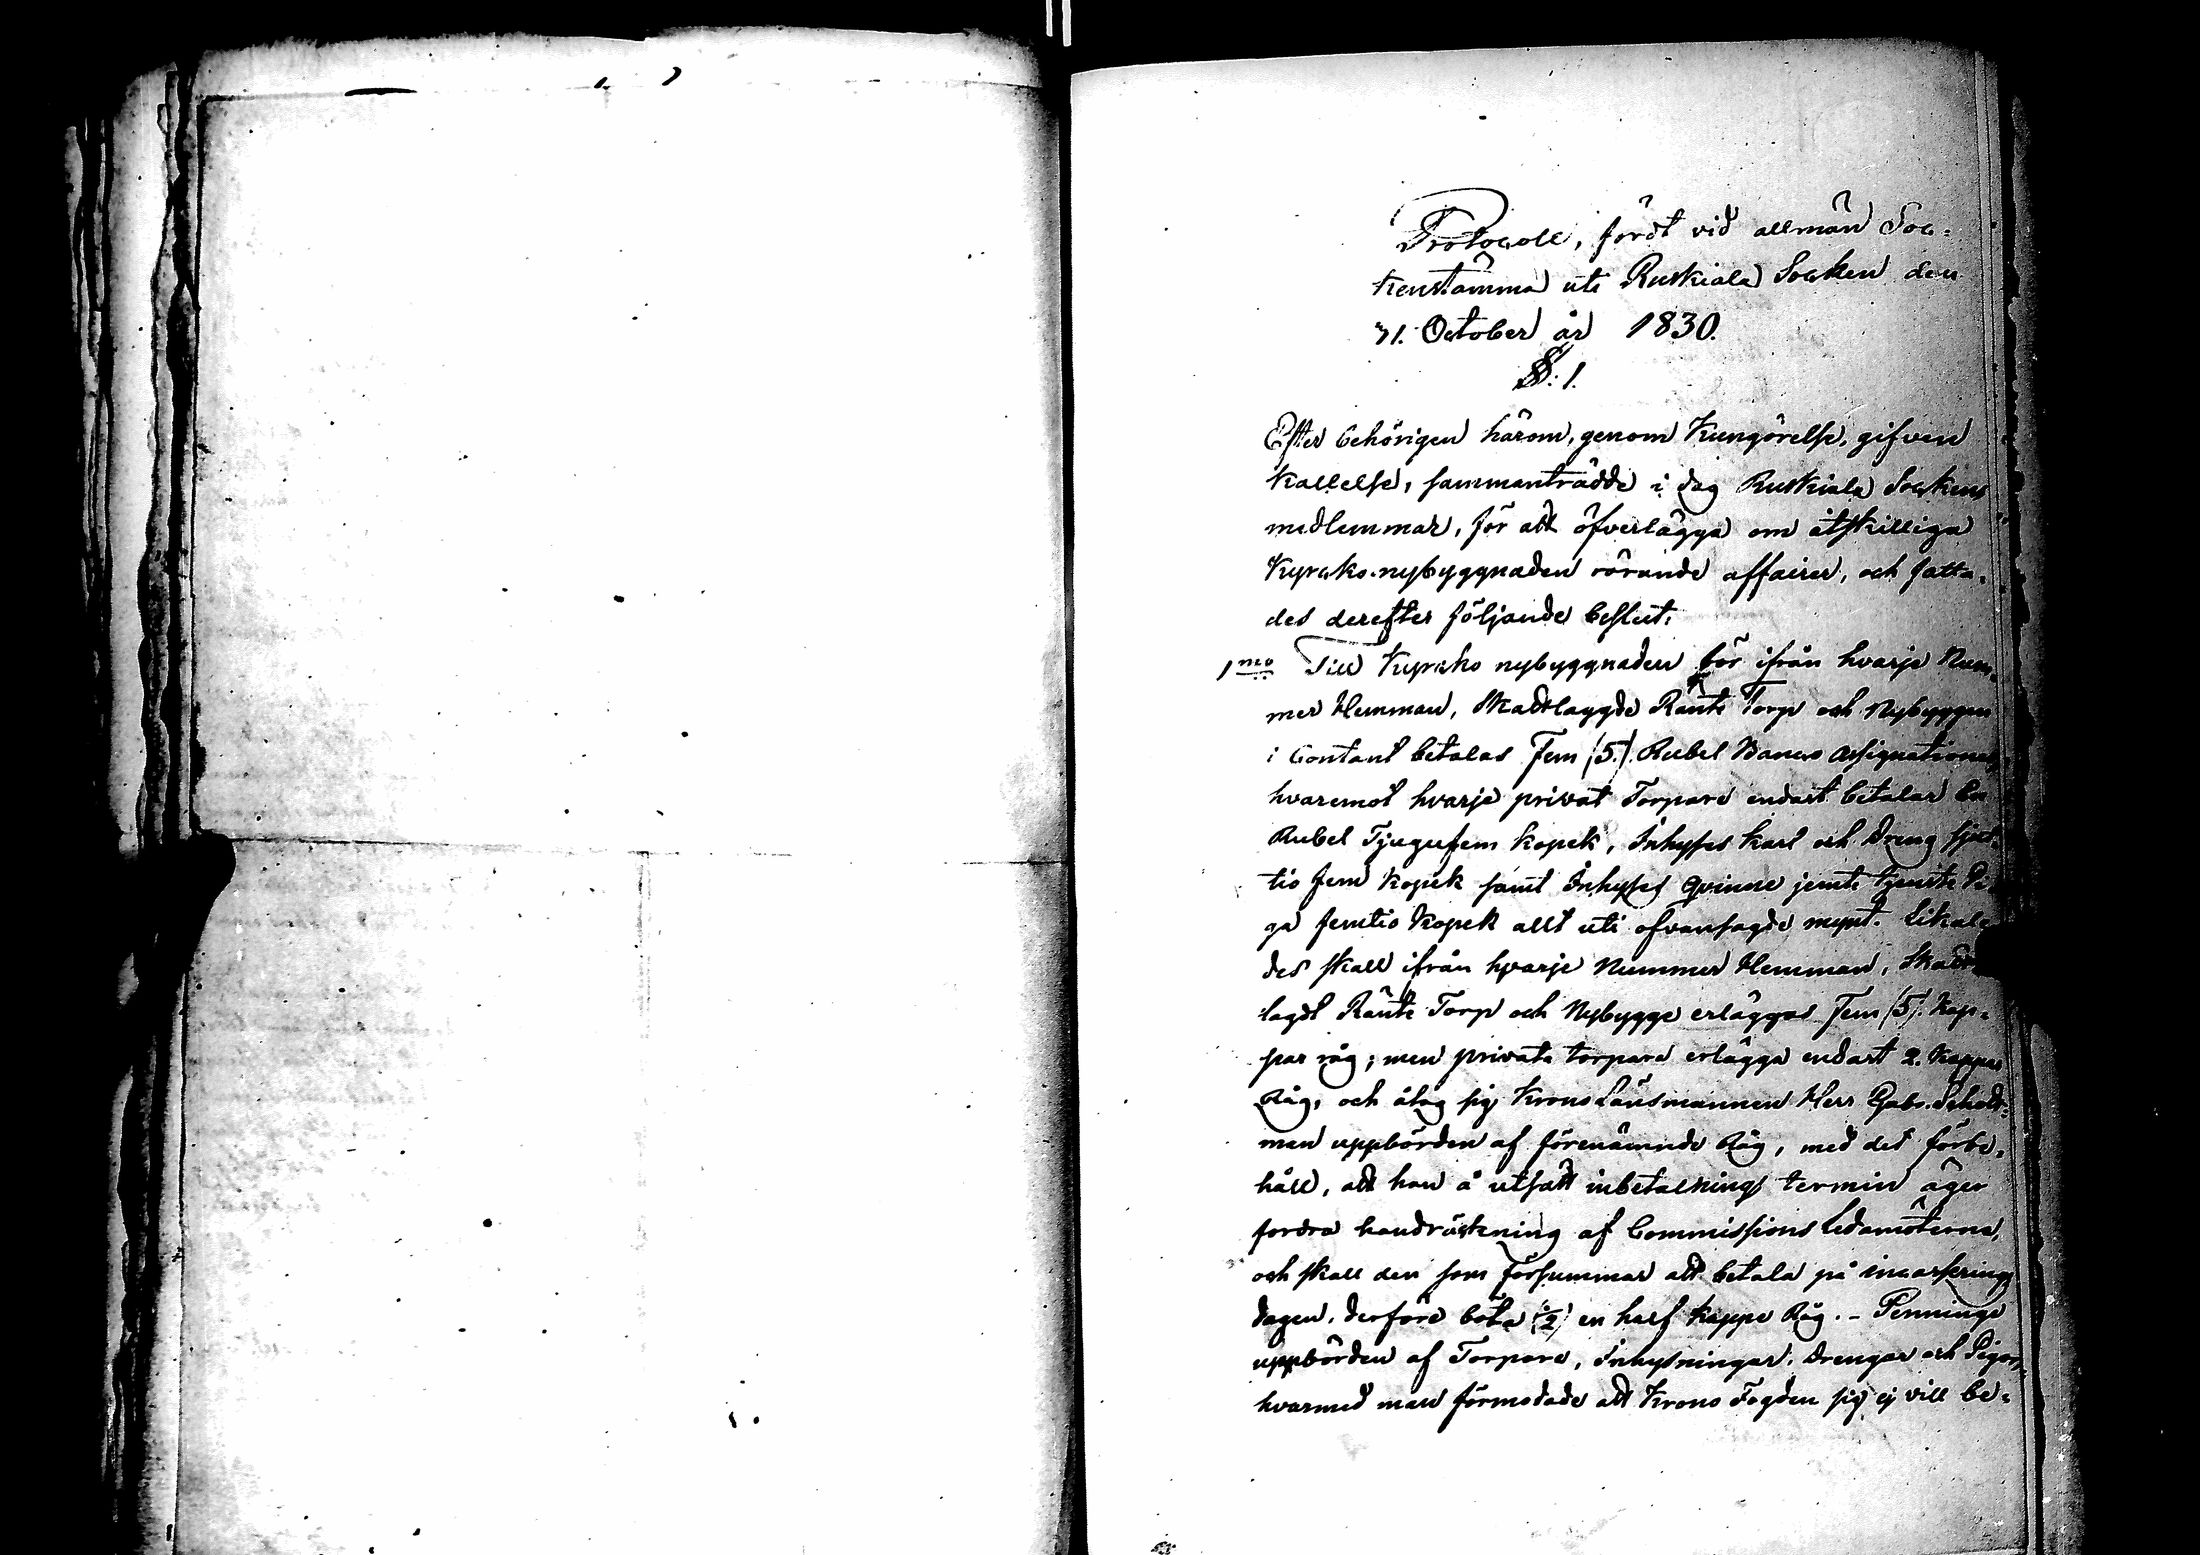 Protocoll, fördt vid allmän Soc-
kenstämma uti Ruskiala Socken den
31. October år 1830.
§: 1.
Efter behörigen härom, genom Kungörelse, gifven
Kallelse, sammanträdde i dag Ruskiala Sockens
medlemmar, för att öfverlägga om åtskilliga
Kyrcko-nybyggnaden rörande affairer, och fatta-
des derefter följande beslut:
1mo Till Kyrcko nybyggnaden bör ifrån hvarje Num-
mer Hemman, Skattlaggde Ränte Torp och Nybyggen
i Contant betalas Fem (5.) Rubel Banco Assignationer,
hvaremot hvarje privat Torpare endast betalar En
Rubel Tjugufem Kopek, Inhyses Karl och Dreng sjut-
tio fem Kopek samt Inhyses Qvinna jemte tjenste Pi-
ga femtio Kopek allt uti ofvansagde mynt. Likale-
des skall ifrån hvarje Nummer Hemman, Skatt-
lagdt Ränte Torp och Nybygge erläggas Fem (5). Kap-
par råg; men privata torpare erlägga endast 2. Kappar
Råg, och åtog sig Krono Länsmannen Herr Gabr.
man uppbörden af förenämnde Råg, med det förbe-
håll, att han å utsatt inbetalnings termin äger
fordra handräckning af Commissions Ledamöterna,
och skall den som försummar att betala på incasserings
dagen, derföre böta (1/2) en half Kappe Råg. - Penninge
uppbörden af Torpare, Inhysningar, Drengar och Pigor,
hvarmed man förmodade att Krono Fogden sig ej vill be-